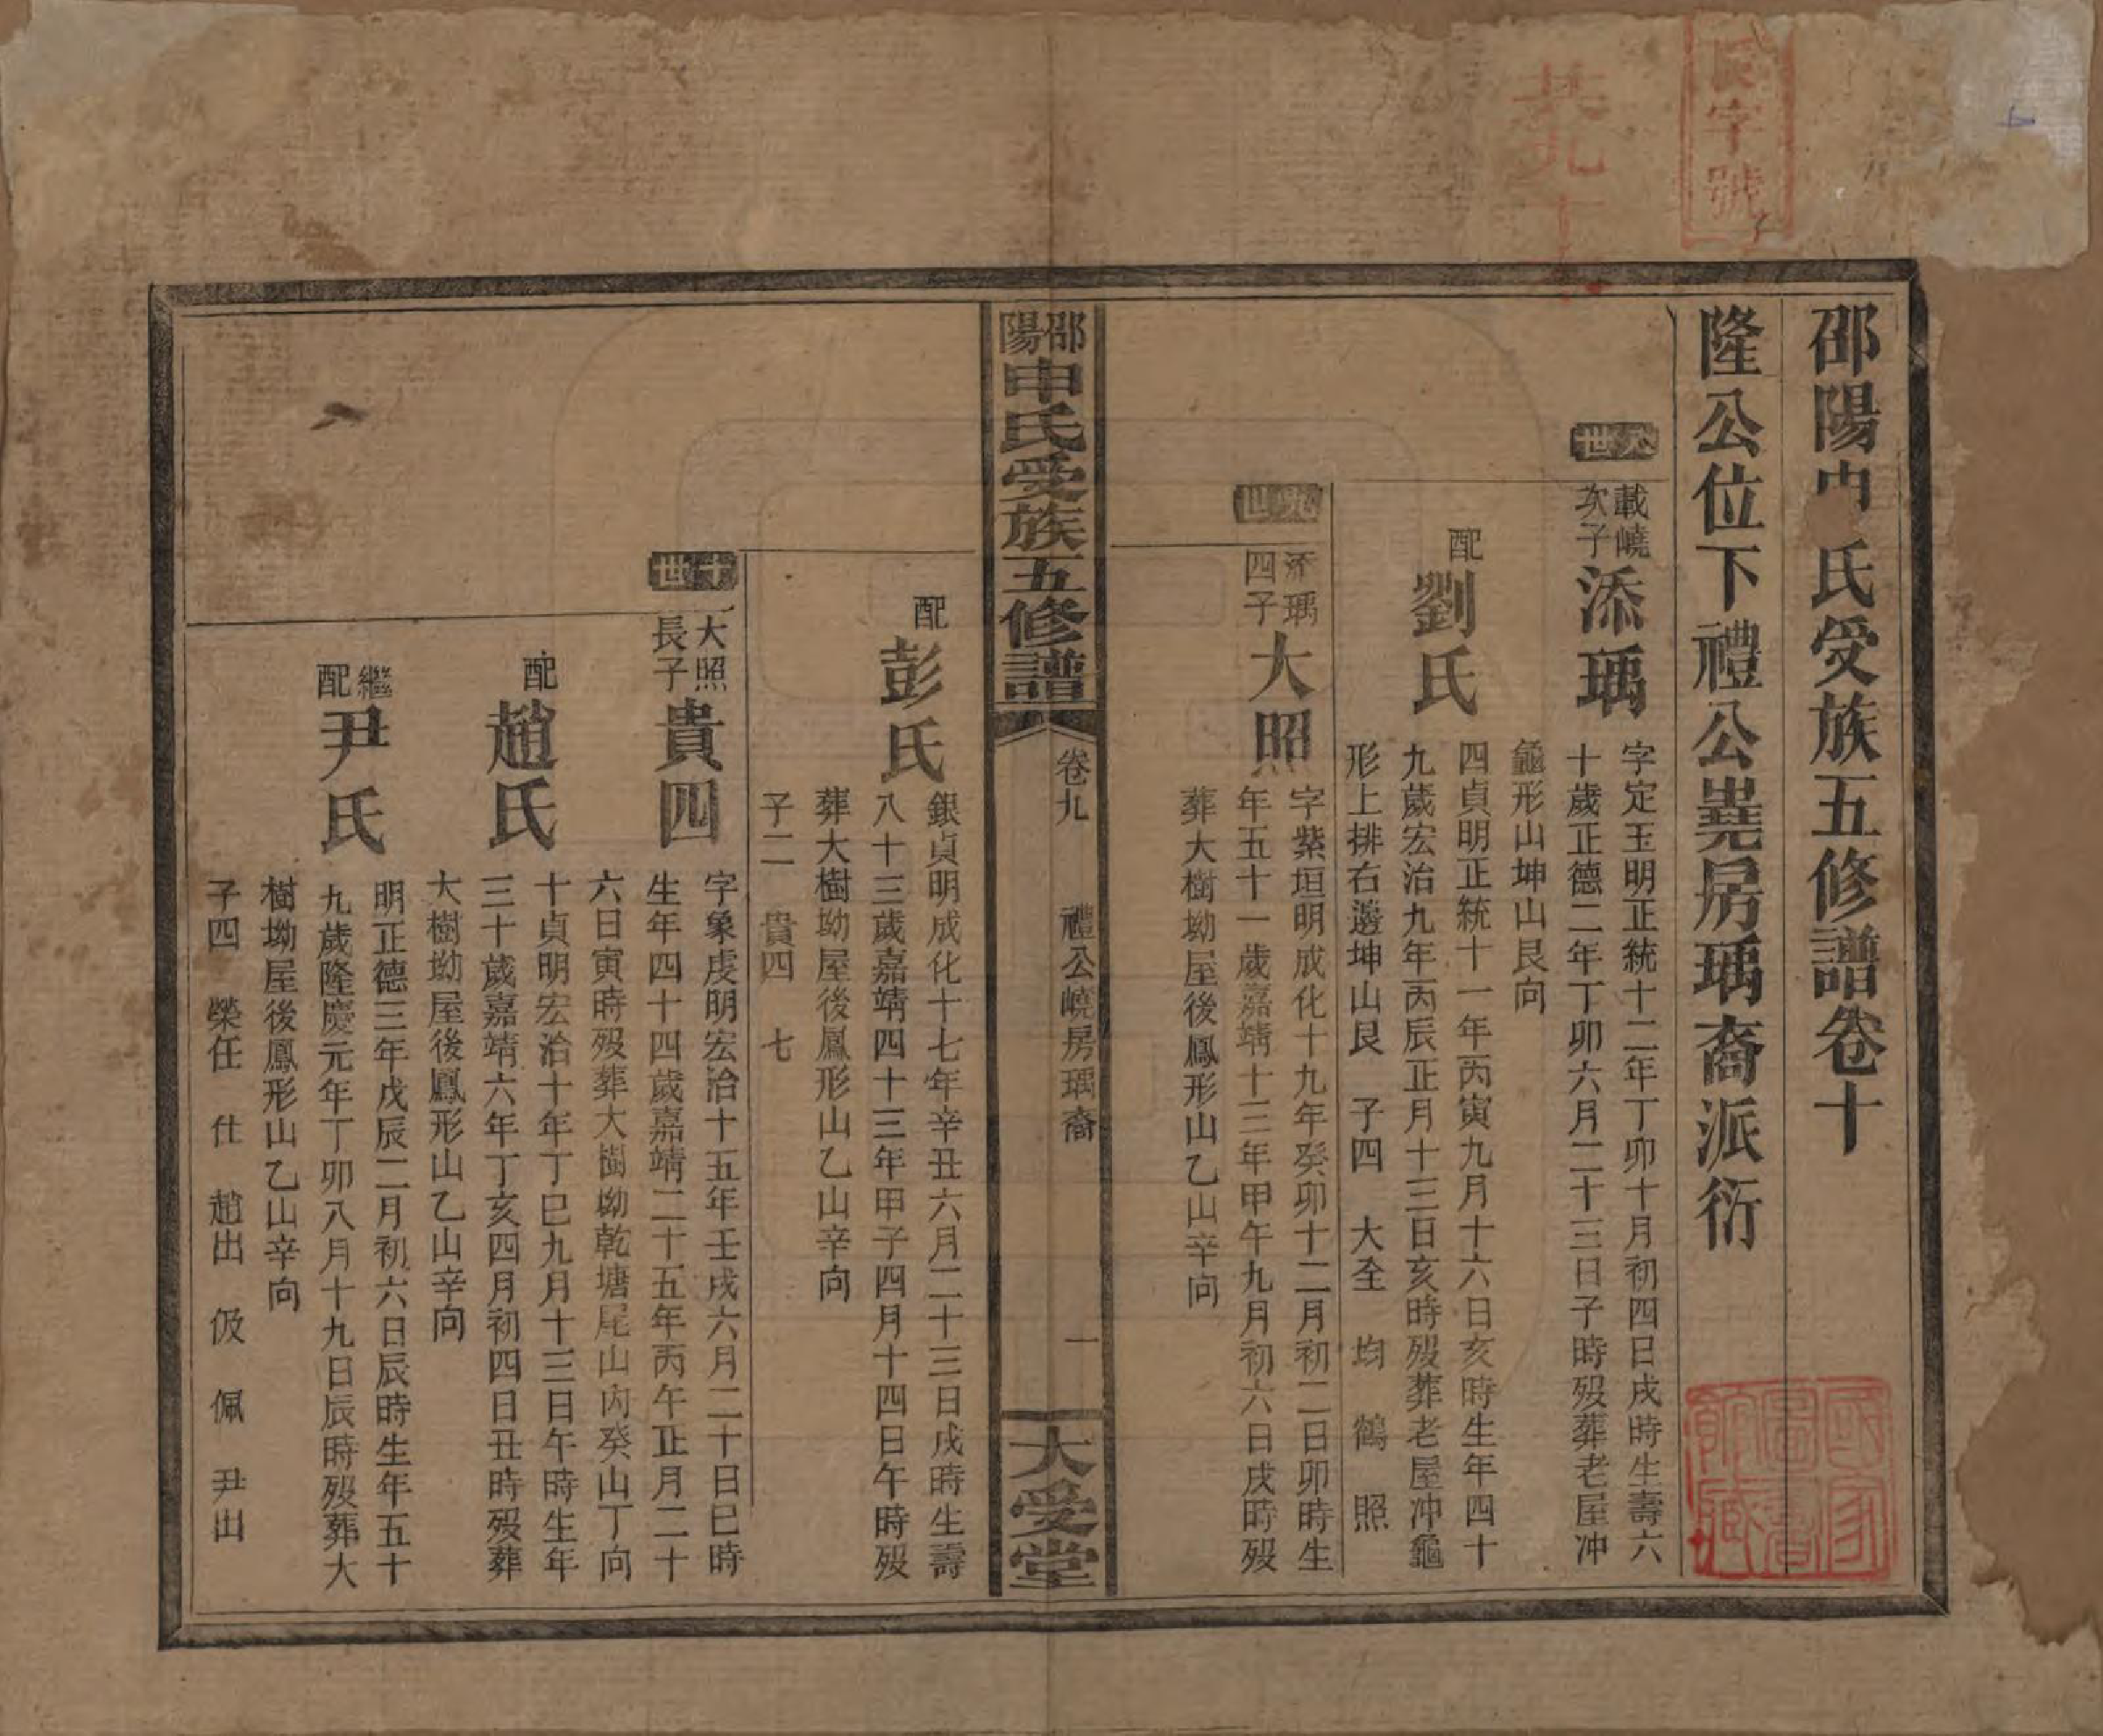 長字號
共九丁
邵陽申氏受族五修譜卷十
隆公位下禮公嶤房瑀裔派衍
八世
載嶢次子
添瑀
字定玉明正統十二年丁卯十月初四日戌時生壽六
十歲正德二年丁卯六月二十三日子時歿葬老屋冲
龜形山坤山艮向
配
劉氏
四貞明正統十一年丙寅九月十六日亥時生年四十
九歲宏治九年丙辰正月十三日亥時歿葬老屋冲龜
形上排右邊坤山艮 子四 大全 均 鶴 照
九世
添瑀四子
大照
字紫垣明成化十九年癸卯十二月初二日卯時生
年五十一歲嘉靖十三年甲午九月初六日戌時歿
葬大樹坳屋後鳳形山乙山辛向
邵陽申氏受族五修譜
卷九
禮公嶢房瑀裔
一
大受堂
配
彭氏
銀貞明成化十七年辛丑六月二十三日戌時生壽
八十三歲嘉靖四十三年甲子四月十四日午時歿
葬大樹坳屋後鳳形山乙山辛向
子二 貴四 七
十世
大照長子
貴四
字象虔明宏治十五年壬戌六月二十日巳時
生年四十四歲嘉靖二十五年丙午正月二十
六日寅時歿葬大樹坳乾塘尾山內癸山丁向
配
趙氏
十貞明宏治十年丁巳九月十三日午時生年
三十歲嘉靖六年丁亥四月初四日丑時歿葬
大樹坳屋後鳳形山乙山辛向
繼配
尹氏
明正德三年戊辰二月初六日辰時生年五十
九歲隆慶元年丁卯八月十九日辰時歿葬大
樹坳屋後鳳形山乙山辛向
子四 榮任 仕 趙出 伋 佩 尹出
國家圖書館藏